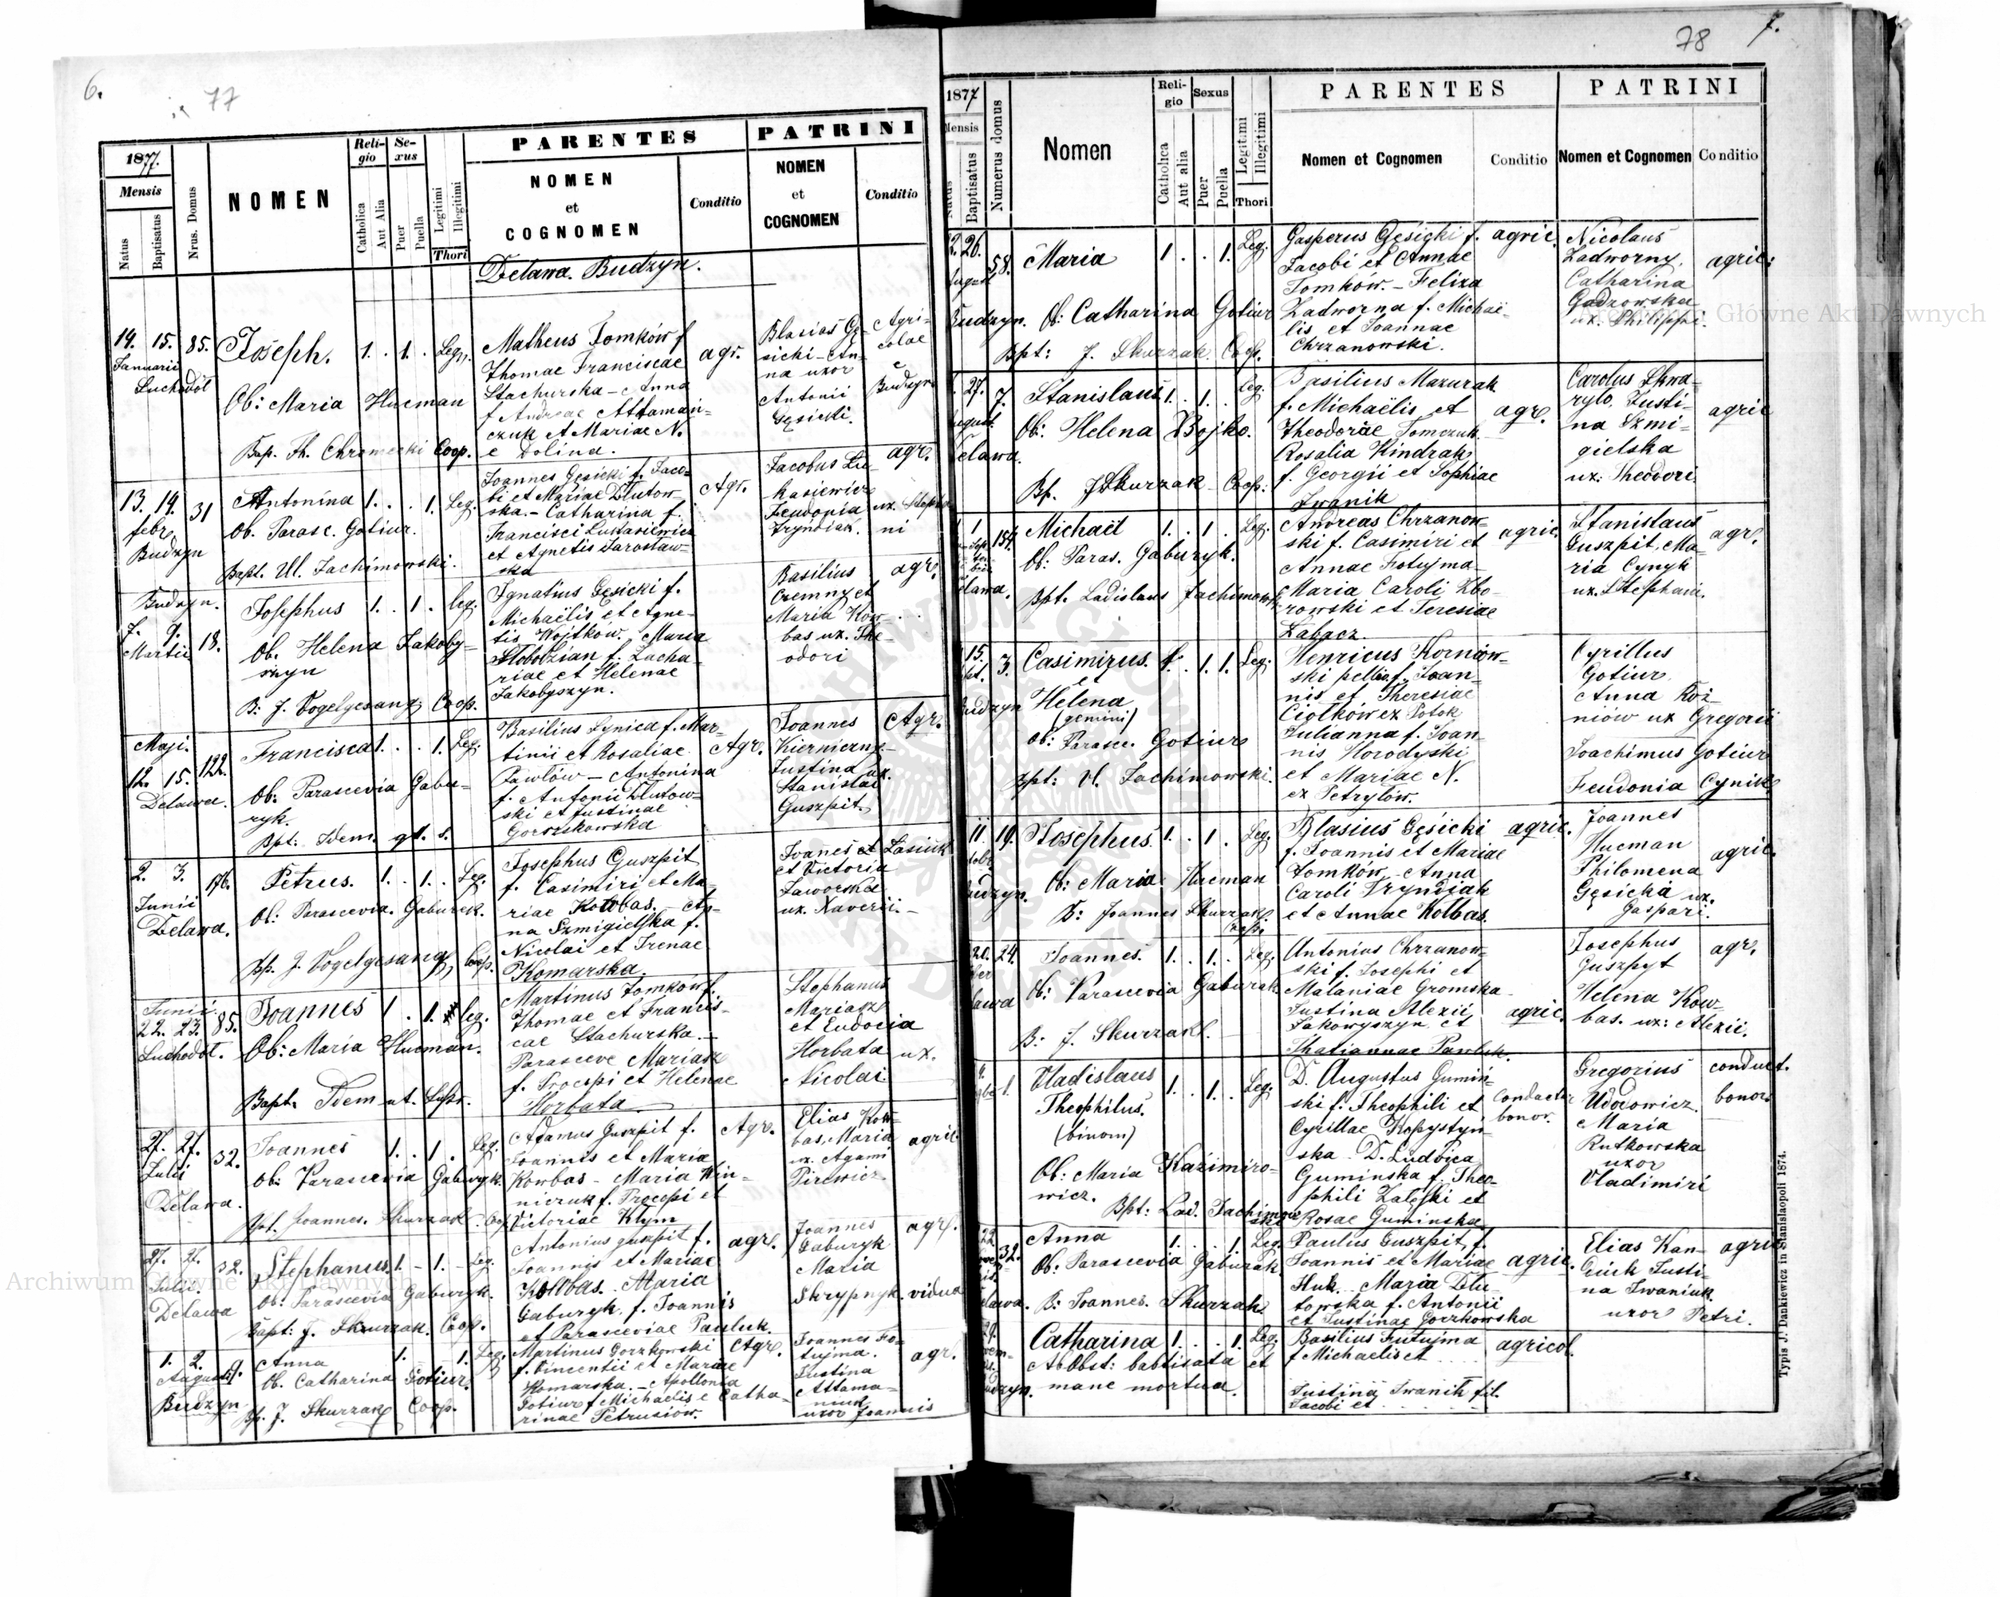 6.
77
1877.
Mensis
Natus
Baptisatus
Nrus. Domus
NOMEN
Reli-
gio
Catholica
Aut Alia
Se-
xus
Puer
Puella
Legitimi
Illegitimi
Thori
PARENTES
NOMEN
et
COGNOMEN
Conditio
PATRINI
NOMEN
et
COGNOMEN
Conditio
Delawa. Budzyn.
14. 15. 85.
Januarii
Suchodół
Joseph. 1. . 1. Leg.
Ob: Maria Hucman
Bap. Th. Chromecki Coop.
Matheus Tomków f
Thomae Franciscae
Stachurska – Anna
f Andreae Attaman-
czuk et Mariae N.
e Dolina.
agr.
Blasius Gę-
sicki – An-
na uxor
Antonii
Gęsicki.
Agri-
colae
e
Budzyn
13. 14. 31
febr.
Budzyn
Antonina 1. . . 1. Leg.
Ob. Parasc. Gotiur.
Bapt. Ul. Jachimowski.
Joannes Gęsicki f. Jaco-
bi et Mariae Dlutow-
ska. – Catharina f.
Francisci Lukasiewicz
et Agnetis Jarosław-
ska
Agr.
Jacobus Lu-
kasiewicz
Feudonia
Tryndiak.
agr.
ux. Stepha-
ni
Budzyn.
7. 9. 18.
Martii
Josephus 1. . 1. leg.
Ob. Helena Jakoby-
szyn
B: J. Vogelgesang Coop.
Ignatius Gęsicki f.
Michaëlis et Agne-
tis Wojtków. Maria
Słobodzian f. Zacha-
riae et Helenae
Jakobyszyn.
Basilius
Czemny et
Maria Kow-
bas ux. The-
odori
agr.
Maji.
12. 15. 122.
Delawa.
Francisca 1. . . 1. Leg.
Ob: Parascevia Gabu-
ryk.
Bpt: Idem qt. s.
Basilius Cynica f. Mar-
tinii et Rosaliae
Pawlów – Antonina
f. Antonii Dlutow-
ski et Justinae
Gorzskowska
Agr.
Joannes
Kierniczny
Justina ux.
Stanislai
Guszpit
Agr.
2. 3. 176.
Junii
Delawa.
Petrus. 1. . 1. . Leg.
Ob: Parascevia Gaburek.
Bp. J. Vogelgesang, Coop.
Josephus Guszpit
f. Casimiri et Ma-
riae Kowbas. An-
na Szmigielska f.
Nicolai et Irenae
Komarska.
et Victoria
Jaworska
ux. Xaverii. –
Junii
22. 23. 85.
Suchodół.
Joannes 1. . 1. leg.
Ob: Maria Hucman.
Bapt. Idem ut. supr.
Martinus Tomków f.
Thomae et Francis-
cae Stachurska. –
Parasceve Mariasz
f. Procopi et Helenae
Horbata
Stephanus
Mariasz
et Eudocia
Horbata ux.
Nicolai
27. 27. 32.
Julii
Delawa.
Joannes 1. . 1. Leg.
Ob: Parascevia Gaburyk.
Bpt. Joannes. Skurzak. Coop
Adamus Guszpit f.
Joannis et Maria
Kowbas – Maria Win-
niczuk f. Procopi et
Victoriae Klym
Agr.
Elias Kow-
bas, Maria
ux. Agami
Pirewicz
agric
27. 27. 32.
Julii.
Delawa
Stephanus 1. – 1. – Leg.
Ob: Parascevia Gaburyk.
Bapt: J. Skurzak. Coop.
Antonius guszpit f.
Joannis et Mariae
Kowbas. Maria
Gaburyk f. Joannis
et Parasceviae Pauluk.
agr.
Joannes
Gaburyk
Maria
Skrypnyk. vidua
agr.
1. 2.
Augusti
Budzyn
Anna 1. 1. Leg.
Ob. Catharina Gotiur.
Bp. J. Skurzak Coop.
Martinus Gorzkowski
f. Vincentii et Mariae
Komarska. – Apollonia
Gotiur f Michaëlis e Catha-
rinae Petrusiów.
Agr.
Joannes Fo-
tujma.
Justina
Attama-
niuk
uxor Joannis
agr.
78
7.
1877
Mensis
Natus
Baptisatus
Numerus domus
Nomen
Reli-
gio
Catholica
Aut alia
Sexus
Puer
Puella
Legitimi
Illegitimi
Thori
PARENTES
Nomen et Cognomen
Conditio
PATRINI
Nomen et Cognomen
Conditio
26. 58.
Budzyn.
Maria 1 . . 1. Leg.
Ob: Catharina Gotiur
Bpt: J. Skurzak. Coop.
Gasperus Gęsicki f.
Jacobi et Annae
Tomków. – Feliza
Zadworna f. Michaë-
lis et Joannae
Chrzanowski.
agric.
Nicolaus
Zadworny.
Catharina
Gadzowska
ux. Philippi.
agric:
27. 7.
Delawa.
Stanislaus 1. . 1. . leg.
Ob: Helena Bojko.
Bp. J Skurzak – Coop:
Basilius Mazurak
f. Michaëlis et
Theodorae Tomczuk
Rosalia Kindrak
f. Georgii et Sophiae
Iwanik
agr.
Carolus Skwa-
rylo, Justi-
na Szmi-
gielska
ux. Theodori.
agric
1 154.
Delawa.
Michaël 1. . 1 . Leg.
Ob: Paras. Gaburyk.
Bpt. Ladislaus Jachimowski
Andreas Chrzanow-
ski f. Casimiri et
Annae Fotujma –
Maria Caroli Zbo-
rowski et Teresiae
Labacz.
agric.
Stanislaus
Guszpit. Ma-
ria Cynyk
ux. Stephani.
agr.
15. 3.
Budzyn
Casimirus. 1. . 1. 1. Leg.
et
Helena
(gemini)
Ob: Parasc. Gotiur
Bpt: Ul. Jachimowski.
Henricus Kornow-
ski pellio f. Joan-
nis et Theresiae
Ciolków ex Potok
Julianna f. Joan-
nis Horodyski
et Mariae N.
ex Petrylów.
Cyrillus
Gotiur
Anna Koż-
niów ux Gregorii
Joachimus Gotiur
Feudonia Cynik
11. 19.
Budzyn.
Josephus. 1. . 1. Leg.
Ob: Maria Hucman
B: Joannes Skurzak.
Coop.
Blasius Gęsicki
f. Joannis et Mariae
Tomków. – Anna
Caroli Tryndiak
et Annae Kolbas.
agric.
Joannes
Hucman
Philomena
Gęsicka ux.
Gaspari.
agric.
20. 24.
Delawa
Joannes. 1. . 1. . Leg.
Ob: Parascevia Gaburak
B: J. Skurzak. –
Antonius Chrzanow-
ski f. Josephi et
Malaniae Gromska
Justina Alexii
Jakowyszyn et
Thatiannae Pawluk.
agric.
Josephus
Guszpyt
Helena Kow-
bas. ux: Alexii.
agr.
1.
Vladislaus 1. . 1. . Leg.
Theophilus.
(binom)
Ob: Maria Kazimiro-
wicz.
Bpt: Lad. Jachimow-
ski
D. Augustus Gumiń-
ski f. Theophili et
Cyrillae Kopystyń-
ska. D. Ludvica
Guminska f. Theo-
phili Zaleski et
Rosae Guminska.
Conductor
bonor.
Gregorius
Udorowicz.
Maria
Rutkowska
uxor
Vladimiri
conduct.
bonor.
22
32.
Delawa.
Anna 1. . . 1 Leg.
Ob: Parascevia Gaburak.
B: Joannes. Skurzak.
Paulus Guszpit f.
Joannis et Mariae
Huk. Maria Dlu-
towska f. Antonii
et Justinae Gorzkowska
agric.
Elias Kan-
Justi-
na Iwaniuk.
uxor Petri.
agric
29.
Budzyn.
Catharina 1. . . 1. Leg.
Ab Obst: babtisata et
mane mortua.
Basilius Futujma
f Michaëlis et . . . .
Justina Iwanik fil.
Jacobi et . . . . . .
agricol.
Typis J. Dankiewicz in Stanislaopoli 1874.
Archiwum Główne Akt Dawnych
Archiwum Główne Akt Dawnych
ARCHIWUM GŁÓWNE AKT DAWNYCH